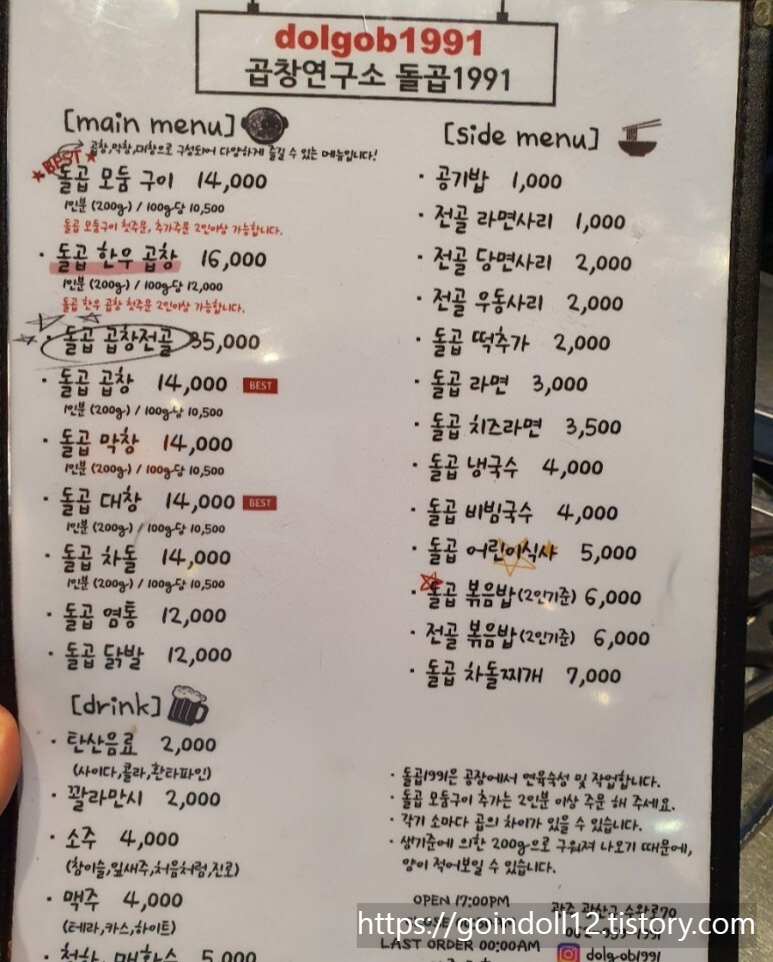 dolgob1991
곱창연구소 돌곱1991
[main menu]
곱창,막창,대창으로 구성되어 다양하게 즐길 수 있는 메뉴입니다!
★BEST★
돌곱 모둠 구이 14,000
1인분 (200g) / 100g당 10,500
돌곱 모둠구이 첫주문, 추가주문 2인이상 가능합니다.
· 돌곱 한우 곱창 16,000
1인분 (200g) / 100g당 12,000
돌곱 한우 곱창 첫주문 2인이상 가능합니다.
· 돌곱 곱창전골 35,000
· 돌곱 곱창 14,000 BEST
1인분 (200g) / 100g당 10,500
· 돌곱 막창 14,000
1인분 (200g) / 100g당 10,500
· 돌곱 대창 14,000 BEST
1인분 (200g) / 100g당 10,500
· 돌곱 차돌 14,000
1인분 (200g) / 100g당 10,500
· 돌곱 염통 12,000
· 돌곱 닭발 12,000
[drink]
· 탄산음료 2,000
(사이다,콜라,환타파인)
· 꽐라만시 2,000
· 소주 4,000
(참이슬,잎새주,처음처럼,진로)
· 맥주 4,000
(테라,카스,하이트)
· 청하, 매화수 5,000
[side menu]
· 공기밥 1,000
· 전골 라면사리 1,000
· 전골 당면사리 2,000
· 전골 우동사리 2,000
· 돌곱 떡추가 2,000
· 돌곱 라면 3,000
· 돌곱 치즈라면 3,500
· 돌곱 냉국수 4,000
· 돌곱 비빔국수 4,000
· 돌곱 어린이식사 5,000
· 돌곱 볶음밥(2인기준) 6,000
· 전골 볶음밥(2인기준) 6,000
· 돌곱 차돌찌개 7,000
· 돌곱1991은 공장에서 연육숙성 및 작업합니다.
· 돌곱 모둠구이 추가는 2인분 이상 주문 해 주세요.
· 각기 소마다 곱의 차이가 있을 수 있습니다.
· 생기준에 의한 200g으로 구워져 나오기 때문에,
양이 적어보일 수 있습니다.
OPEN 17:00PM
LAST ORDER 00:00AM
광주 광산구 수완로70
dolgob1991
https://goindoll12.tistory.com